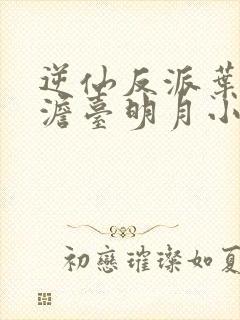 逆仙反派葉
澹臺明月小
初戀璀璨如夏